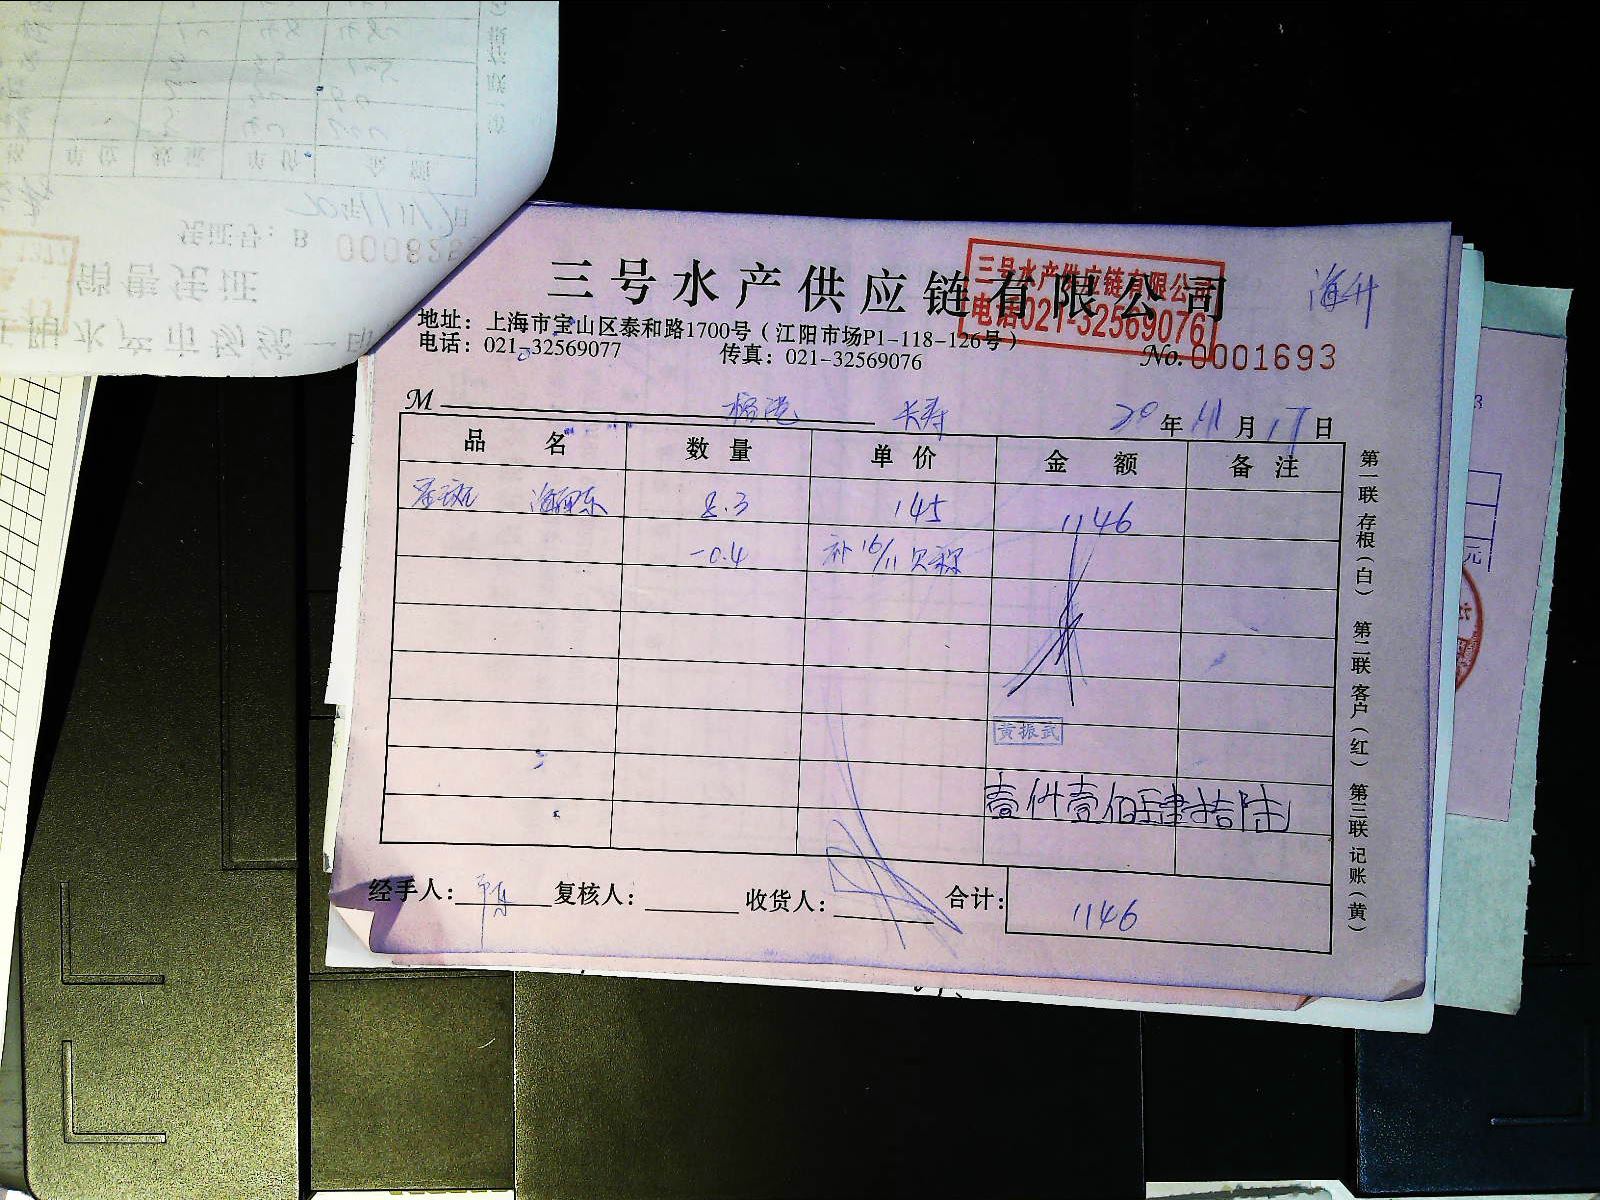 三号水产供应链有限公司
三号水产供应链有限公司
电话021-32569076
海升
地址：上海市宝山区泰和路1700号（江阳市场P1-118-126号）
电话：021-32569077 传真：021-32569076
No. 0001693
M 长寿 20年11月17日
品 名 数量 单价 金 额 备注
8.3 145 1146
-0.4 补16/11欠称
黄振武
壹仟壹佰肆拾陆
经手人： 复核人： 收货人： 合计： 1146
第一联 存根（白） 第二联 客户（红） 第三联 记账（黄）
销售凭证
凭证号：B 00082
单价 金 额
元